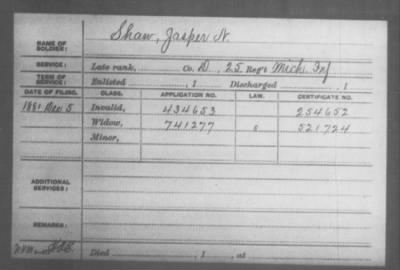 NAME OF SOLDIER: Shaw, Jasper N.
SERVICE: Late rank, Co. D, 25 Reg't Mich. Inf
TERM OF SERVICE: Enlisted , 1 Discharged , 1
DATE OF FILING. CLASS. APPLICATION NO. LAW. CERTIFICATE NO.
1881 Dec 5 Invalid, 434653 254652
Widow, 741277 521724
Minor,
ADDITIONAL SERVICES:
REMARKS:
Died , 1 , at